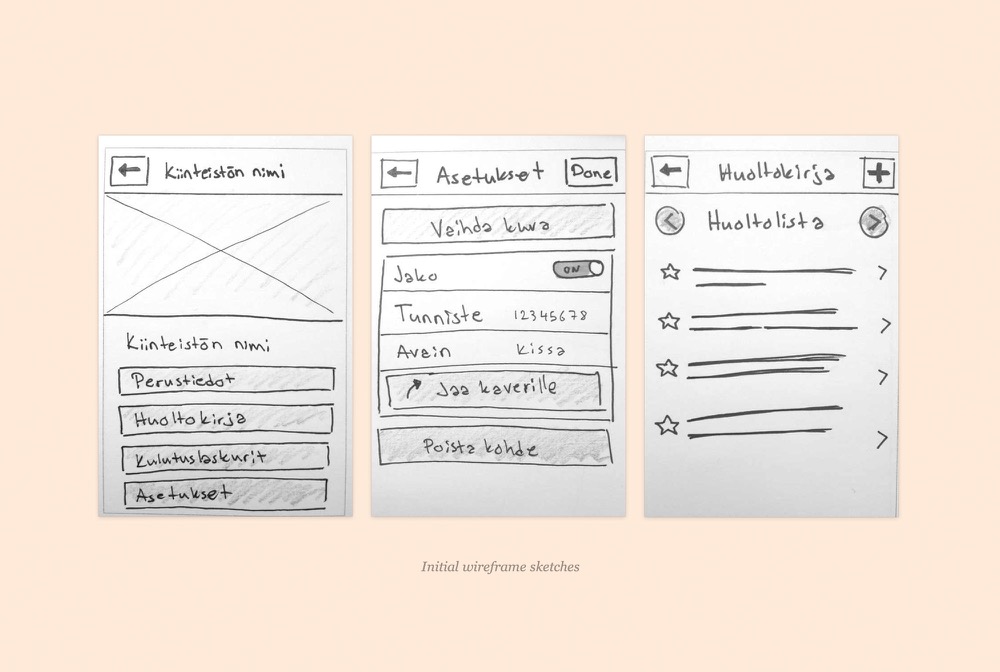 Kiinteistön nimi
Kiinteistön nimi
Perustiedot
Huoltokirja
Kulutuslaskurit
Asetukset
Asetukset Done
Vaihda kuva
Jako ON
Tunniste 12345678
Avain Kissa
Jaa kaverille
Poista kohde
Huoltokirja +
Huoltolista
Initial wireframe sketches